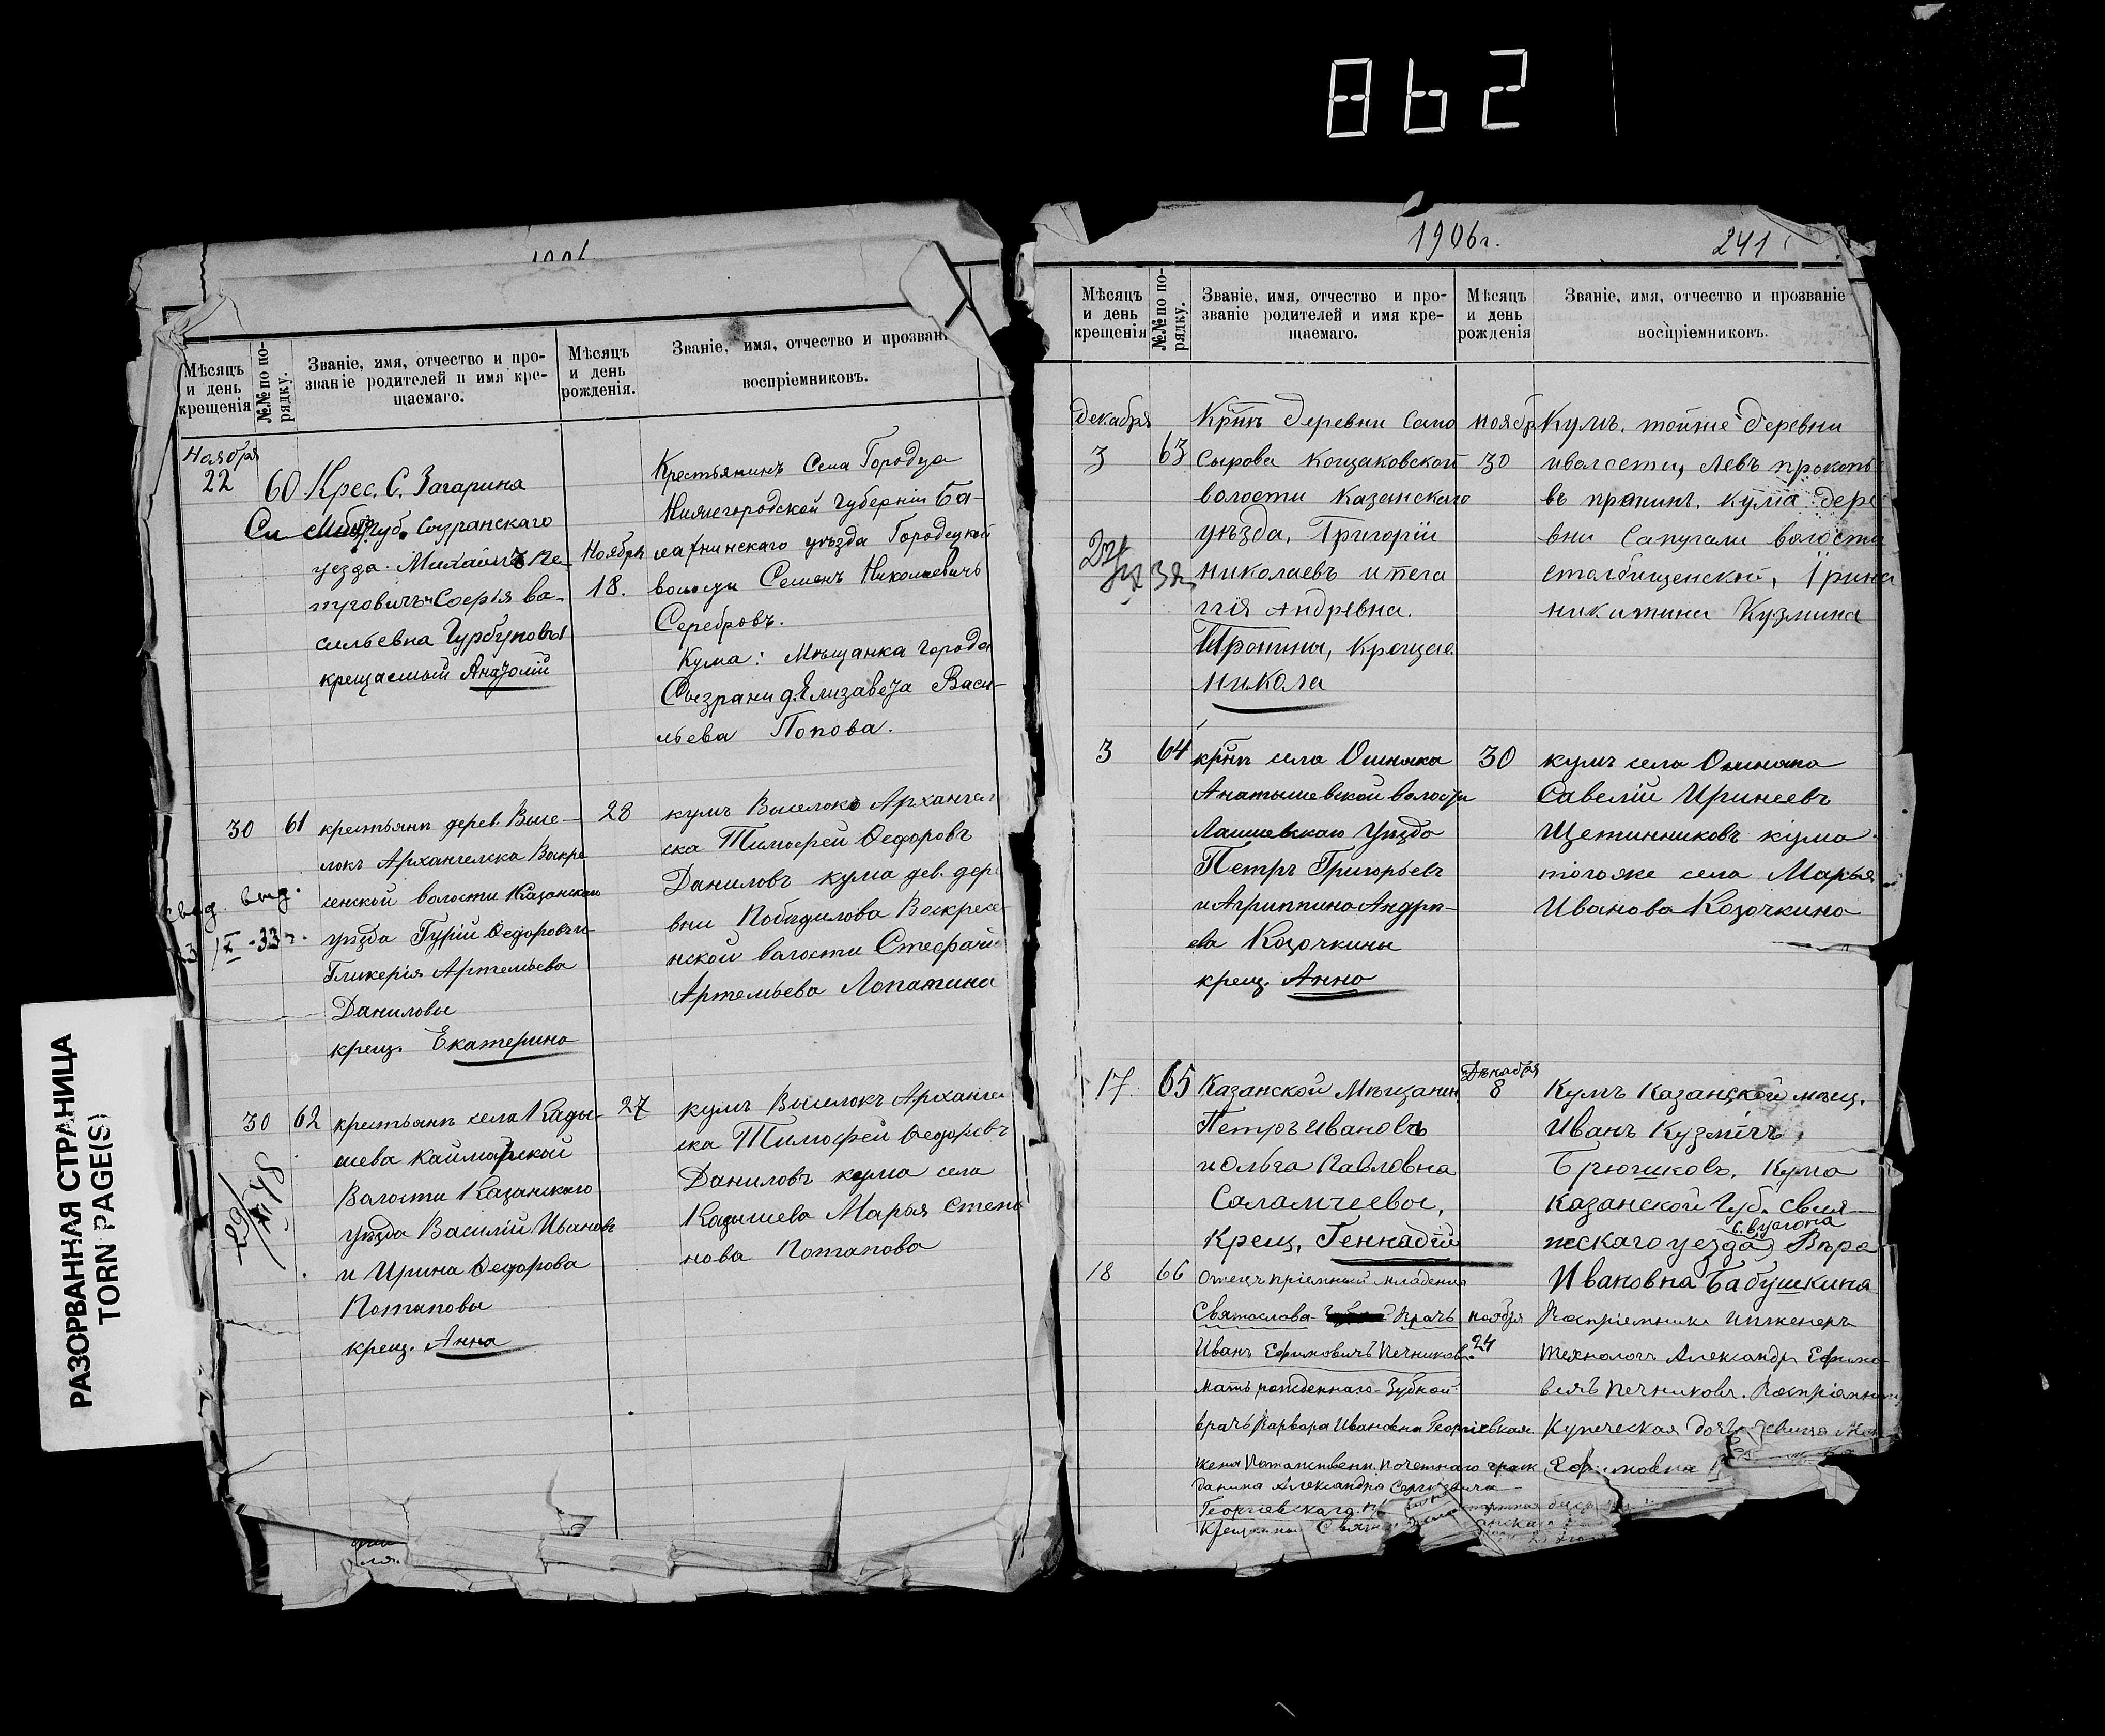 862
РАЗОРВАННАЯ СТРАНИЦА
TORN PAGE(S)
Мѣсяцъ и день крещенія
№№ по порядку.
Званіе, имя, отчество и про-
званіе родителей и имя кре-
щаемаго.
Мѣсяцъ и день рожденія.
Званіе, имя, отчество и прозвані
воспріемниковъ.
Ноября
22
60
Крес. С. Загарина
Симбир. губ. Сызранскаго
уезда. Михаилъ Пе-
тровичъ и Софья Ва-
сильевна Гурбуновы
крещаемый Анатолій
Ноября
18.
Крестьянинъ Села Городца
Нижегородской Губерніи Ба-
лахнинскаго уѣзда Городецкой
волости Семенъ Николаевичъ
Серебровъ.
Кума: Мѣщанка города
Сызрани д. Елизавета Васи-
льева Попова.
30
61
крестьянъ дерев. Высе-
локъ Архангелска Воскре
сенской волости Казанскаго
уѣзда Гурій Федоровъ и
Гликерія Артемьева
Даниловы
крещ. Екатерина
28
кумъ Выселокъ Архангел
ска Тимофей Федоровъ
Даниловъ кума дев. дере
вни Победилова Воскресе
нской волости Стефани
Артемьева Лопатина
выд.
IX-33г.
30
62
крестьянъ села Кады-
шева Каймарской
Волости Казанскаго
уѣзда Василій Ивановъ
и Ирина Федорова
Потаповы
крещ. Анна
27
кумъ Выселокъ Архангел
ска Тимофей Федоровъ
Даниловъ кума села
Кадышева Марья Степа
нова Потапова
1906г.
241
Мѣсяцъ и день крещенія
№№ по порядку.
Званіе, имя, отчество и про-
званіе родителей и имя кре-
щаемаго.
Мѣсяцъ и день рожденія
Званіе, имя, отчество и прозваніе
воспріемниковъ.
декабря
3
63
Крнъ деревни Само
Сырова Кощаковской
волости Казанскаго
уѣзда, Григорій
николаевъ и пела
гія Андревна.
Пронины, Крещае
Никола
ноябр
30
Кумъ. тойже деревни
иволости, Левъ прокопь
въ пронинъ. Кума дере
вни Сапугали волости
столбищенской, Ірина
никитина Кузмина
3
64
крнъ села Ошняка
Анатышевской волости
Лаишевскаго Уѣзда
Петръ Григорьевъ
и Агриппина Андре-
ева Козочкины
крещ. Анна
30
кумъ села Ошняка
Савелій Иринеевъ
Щетинниковъ кума
тогоже села Марья
Иванова Козочкина
17
65
Казанской Мѣщанин.
Петръ Ивановъ
и Ольга Павловна
Саламчеевы,
Крещ. Геннадій
Декабря
8
Кумъ Казанской мѣщ.
Иванъ Кузмичъ
Брюшковъ. Кума
Казанской Губ. Свия-
жскаго уезда Вѣра
Ивановна Бабушкина
18
66
Отецъ пріемный младенца
Святослава врачъ
Иванъ Ефимовичъ Печниковъ.
мать рожденнаго - Зубной
врачъ Варвара Ивановна Георгіевская
жена Потомственн. почетнаго граж
данина Александра Сергѣевича
Георгіевскаго.
Крещенный
ноября
24
Воспріемники инженеръ
технологъ Александръ Ефимо
вичъ Печниковъ.
Купеческая дочь девица
Ефимовна